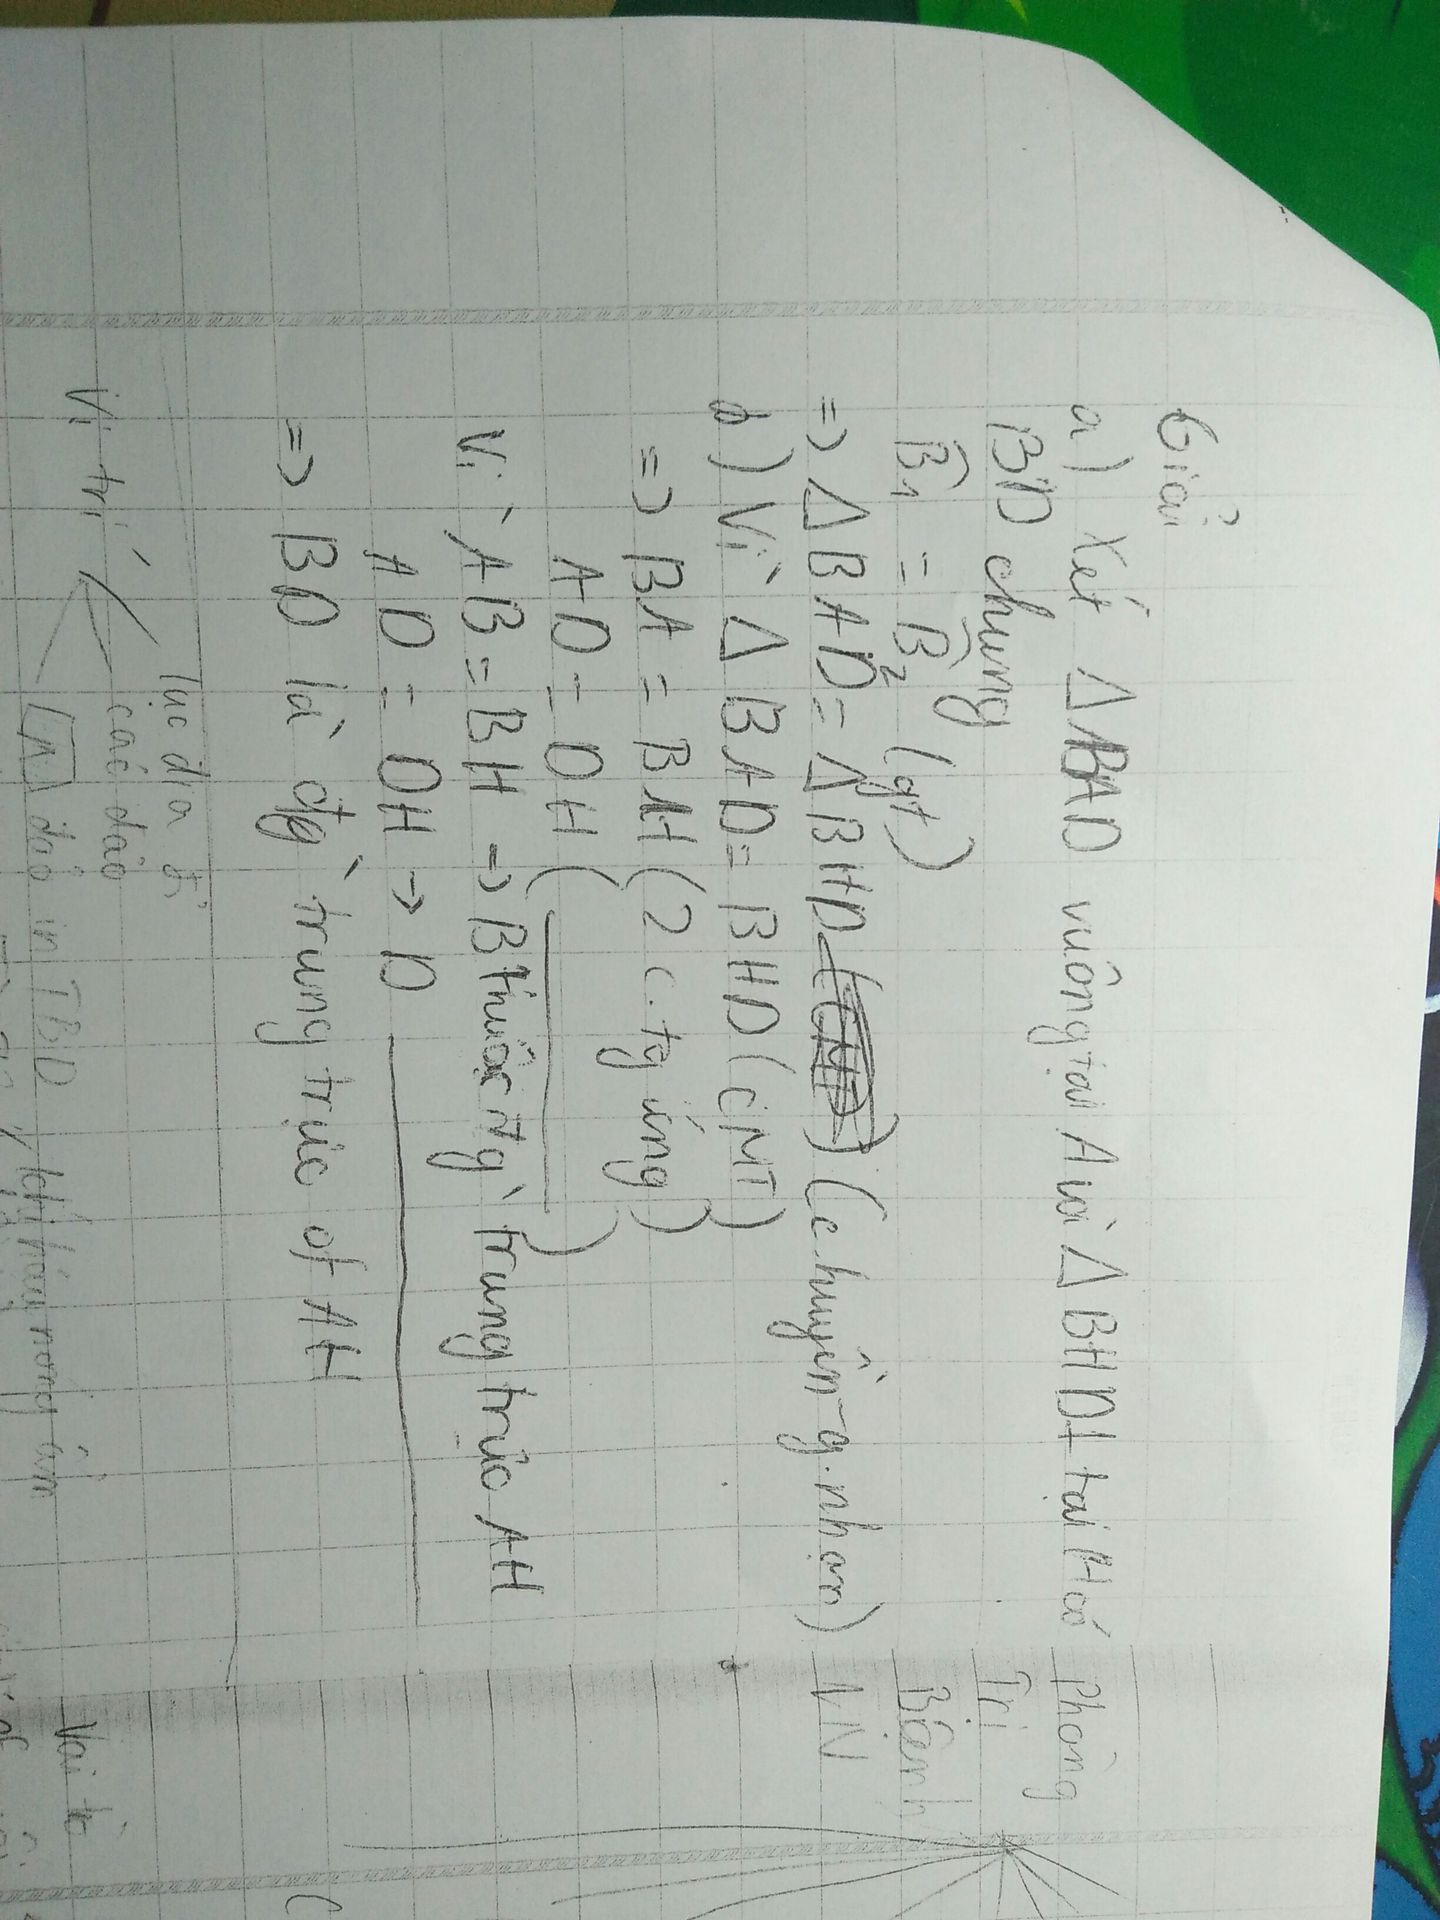 Giải
a) Xét Δ BAD vuông tại A và Δ BHD ⊥ tại H có
BD chung
B̂1 = B̂2 (gt)
=> Δ BAD = Δ BHD (c.huyền-g.nhọn)
b) Vì Δ BAD = BHD (CMT)
=> BA = BH (2 c.tg ứng)
AD = DH ( )
Vì AB = BH => B thuộc đg` trung trực AH
AD = DH -> D
=> BD là đg` trung trực of AH
lục địa
Vị trí các đảo
đảo in TBD
Phòng
Trị
Bệnh
VN
Vai